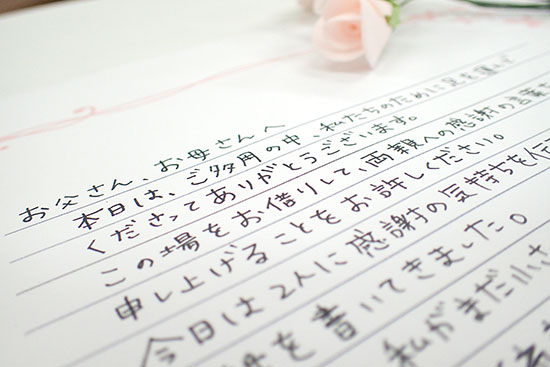 お父さん、お母さんへ
本日は、ご多用の中、私たちのために足を運ん
くださってありがとうございます。
この場をお借りして、両親への感謝の言葉
申し上げることをお許しください。
今日は2人に感謝の気持ちを
を書いてきました。
私がまだ小さ